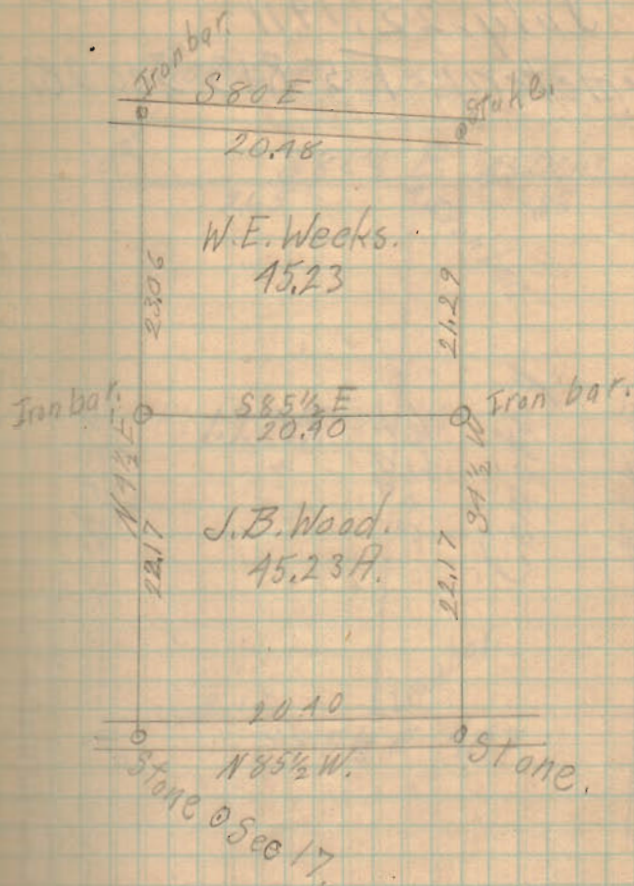 Iron bar.
S 80 E
Stake.
20.48
W. E. Weeks.
45.23
23.06
21.29
Iron bar.
S 85 ½ E
20.40
Iron bar.
N 4 ½ E
S 4 ½ W
J. B. Wood.
45.23 A.
22.17
22.17
20 40
N 85 ½ W.
Stone
Stone.
Sec 17